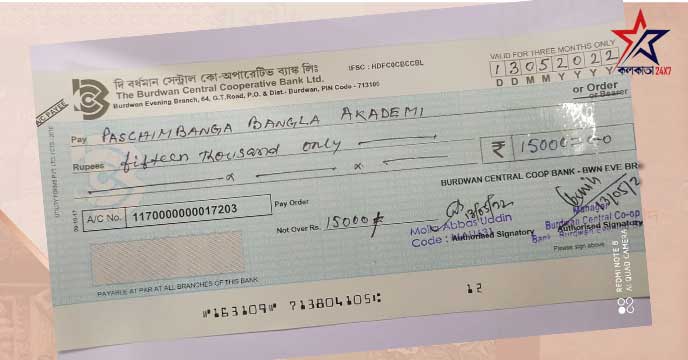 কলকাতা 24X7
A/C PAYEE
দি বর্ধমান সেন্ট্রাল কো-অপারেটিভ ব্যাঙ্ক লিঃ
IFSC : HDFC0CBCCBL
The Burdwan Central Cooperative Bank Ltd.
Burdwan Evening Branch, 64, G.T.Road, P.O. & Dist.- Burdwan, PIN Code - 713101
VALID FOR THREE MONTHS ONLY
13052022
D D M M Y Y Y Y
or Order
or Bearer
Pay PASCHIMBANGA BANGLA AKADEMI
Rupees fifteen thousand only
₹ 15000=00
BURDWAN CENTRAL COOP BANK - BWN EVE BR
A/C No. 1170000000017203
Pay Order
Not Over Rs. 15000/-
13/05/22
Molla Abbas Uddin
Code :
Authorised Signatory
13/05/2
Manager
Burdwan Central Co-op
Authorised Signatory
Bank Burdwan Evening
Please sign above
PAYABLE AT PAR AT ALL BRANCHES OF THIS BANK
⑈163109⑈ 713804105⑆ 12
REDMI NOTE 8
AI QUAD CAMERA